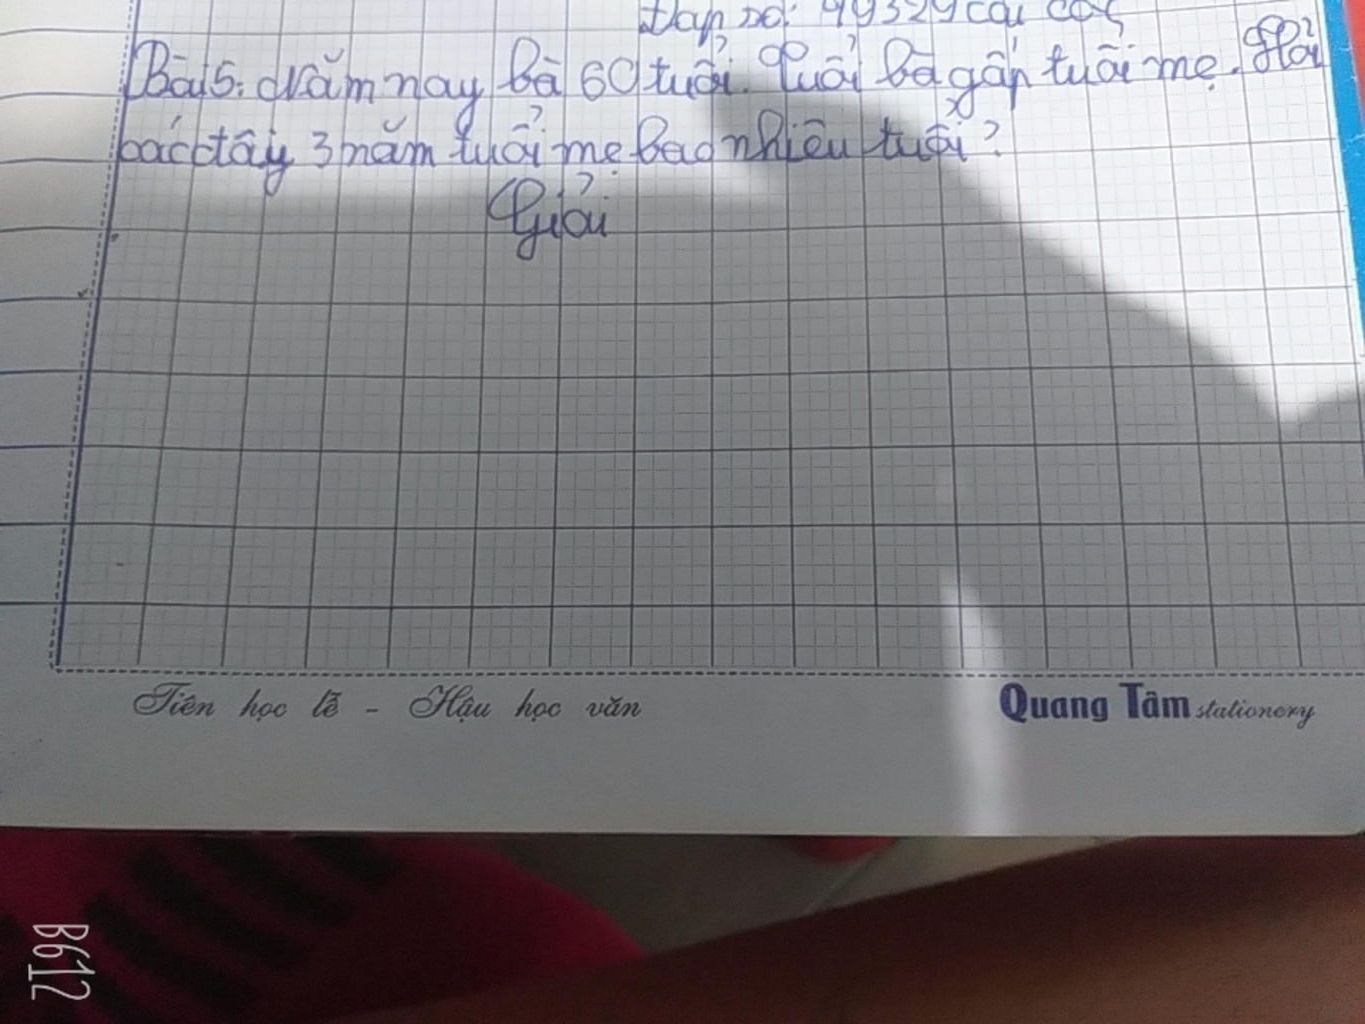 Đáp số: 49329 cái cốc
Bài 5: Năm nay bà 60 tuổi. Tuổi bà gấp tuổi mẹ. Hỏi
các đây 3 năm tuổi mẹ bao nhiêu tuổi?
Giải
Tiên học lễ - Hậu học văn
Quang Tâm stationery
B612